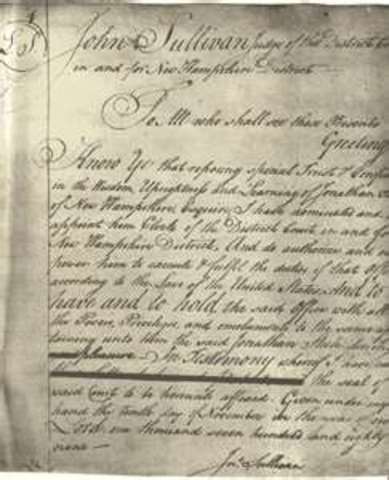 L S
John Sullivan Judge of the District
in and for New Hampshire District
To All who shall see these Presents
Greeting
Know Ye that reposing special Trust &
in the Wisdom, Uprightness and Learning of Jonathan
of New Hampshire, Esquire, I have nominated and
appoint him Clerk of the District Court in and
New Hampshire District, And do authorize and
power him to execute & fulfil the duties of that
according to the Laws of the United States, And to
have and to hold the said Office with
the Powers, Privileges, and emoluments to the same
taining unto him the said Jonathan
pleasure. In Testimony whereof I
the seal of
said Court to be hereunto affixed. Given under
hand the tenth day of November in the year of
Lord one thousand seven hundred and eighty
nine
Jno Sullivan